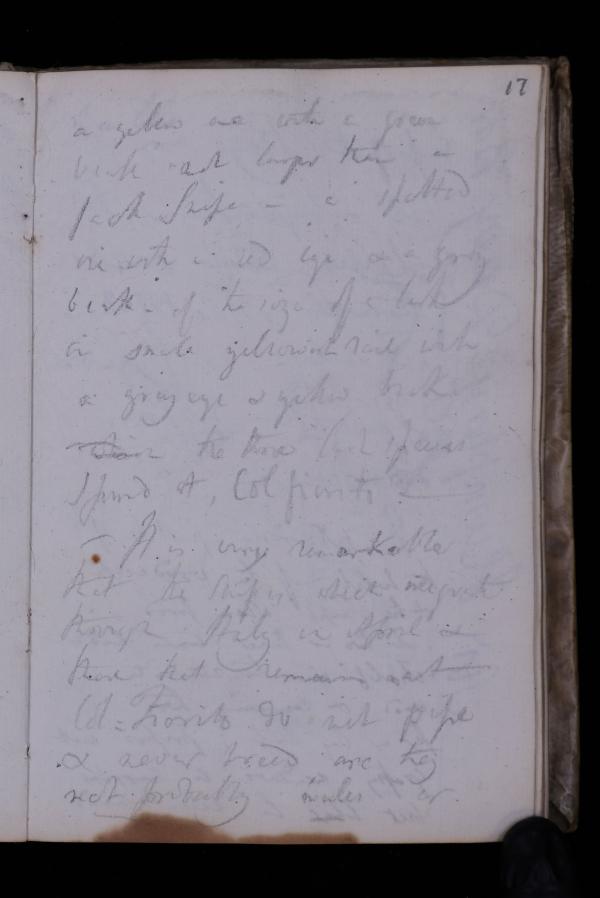 17
a yellow one with a green
beak not larger than a
Jack Snipe - a spotted
one with a red eye & a grey
beak - of the size of a lark
a small yellowish rail with
a grey eye & yellow beak
the three last species
I found at, Colfiorito
- It is very remarkable
that the snipes which migrate
through Italy in April &
those that remain at
Col-Fiorito do not pipe
& never breed are they
not probably mules or